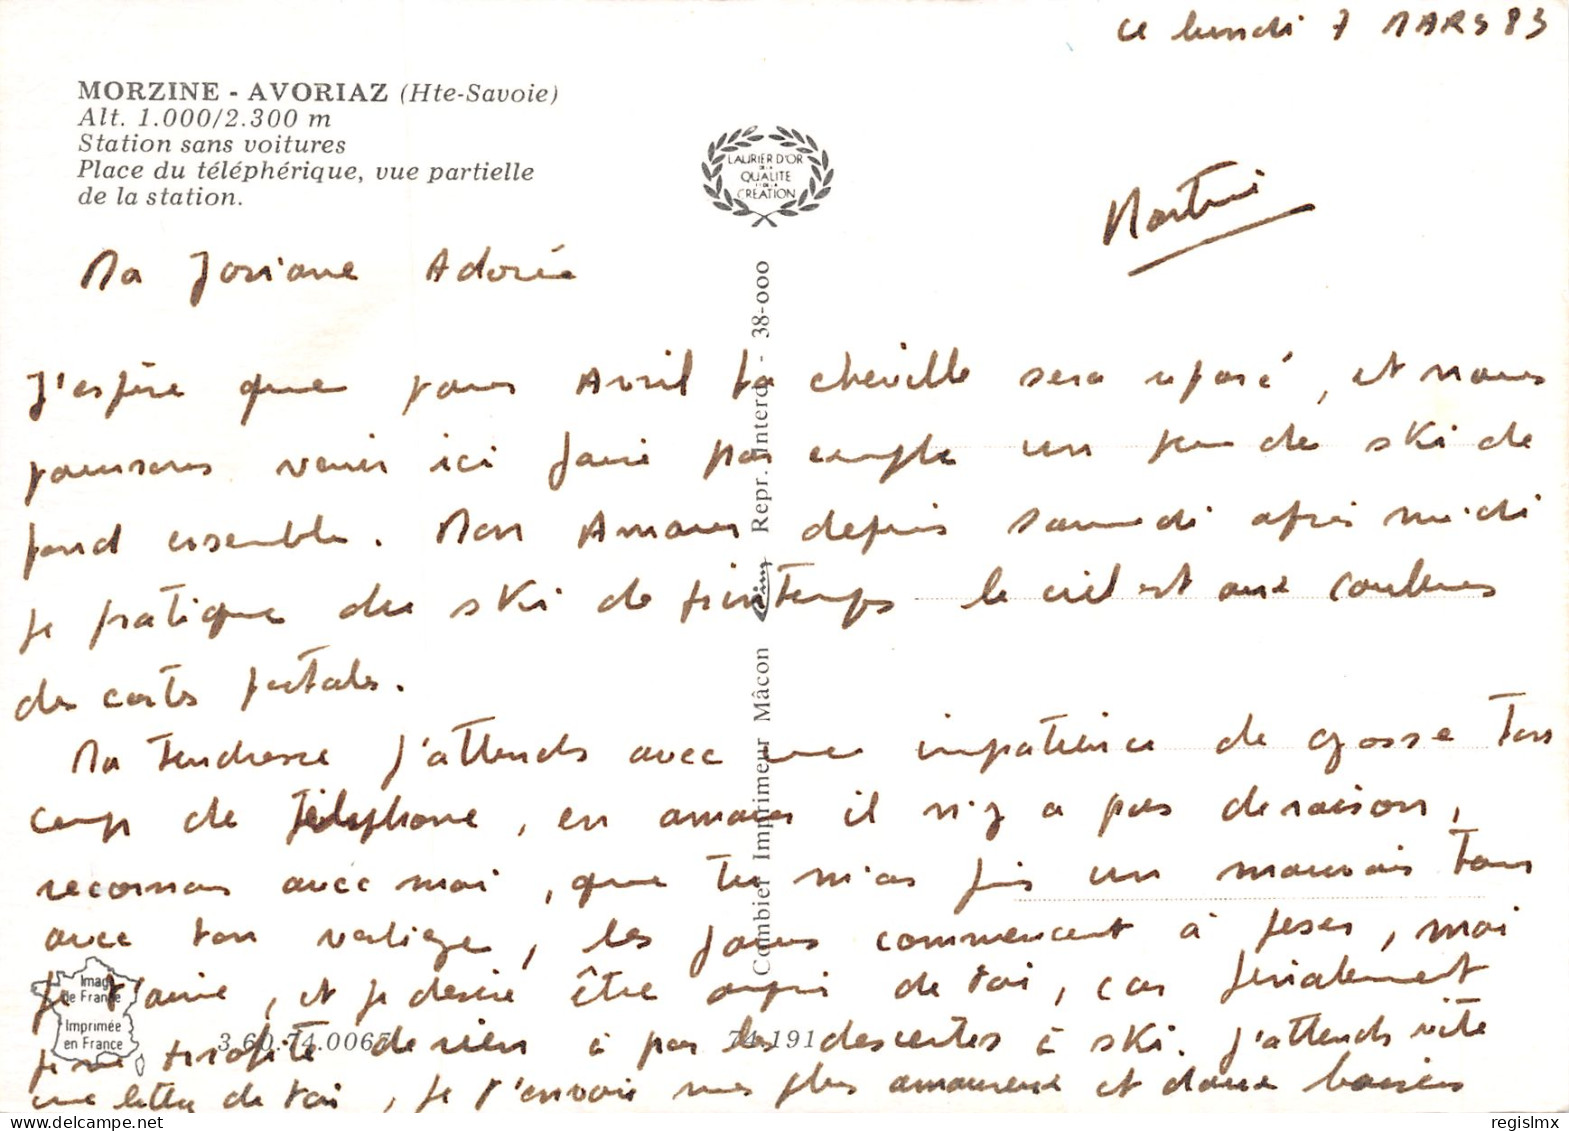 ce lundi 7 MARS 83
MORZINE - AVORIAZ (Hte-Savoie)
Alt. 1.000/2.300 m
Station sans voitures
Place du téléphérique, vue partielle
de la station.
LAURIER D'OR
DE LA
QUALITE
ET DE LA
CREATION
Ma Josiane Adorée
J'espère que pour Avril ta cheville sera reposé, et nous
pourrons venir ici faire par exemple un peu de ski de
fond ensemble. Mon Amour depuis samedi après midi
je pratique du ski de printemps le ciel est aux couleurs
des cartes postales.
Ma tendresse j'attends avec une impatience de gosse ton
coup de téléphone, en amour il n'y a pas de raison,
reconnais avec moi, que tu m'as fais un mauvais tour
avec ton vertige, les jours commencent à peser, moi
je t'aime, et je désire être auprès de toi, car finalement
je ne profite de rien à par les descentes à ski. J'attends vite
une lettre de toi, je t'envoie mes plus amoureux et doux baisers
Cambier Imprimeur Mâcon Repr. Interd. - 38-000
Image
de France
Imprimée
en France
3.60.74.0067
74.191
regislmx